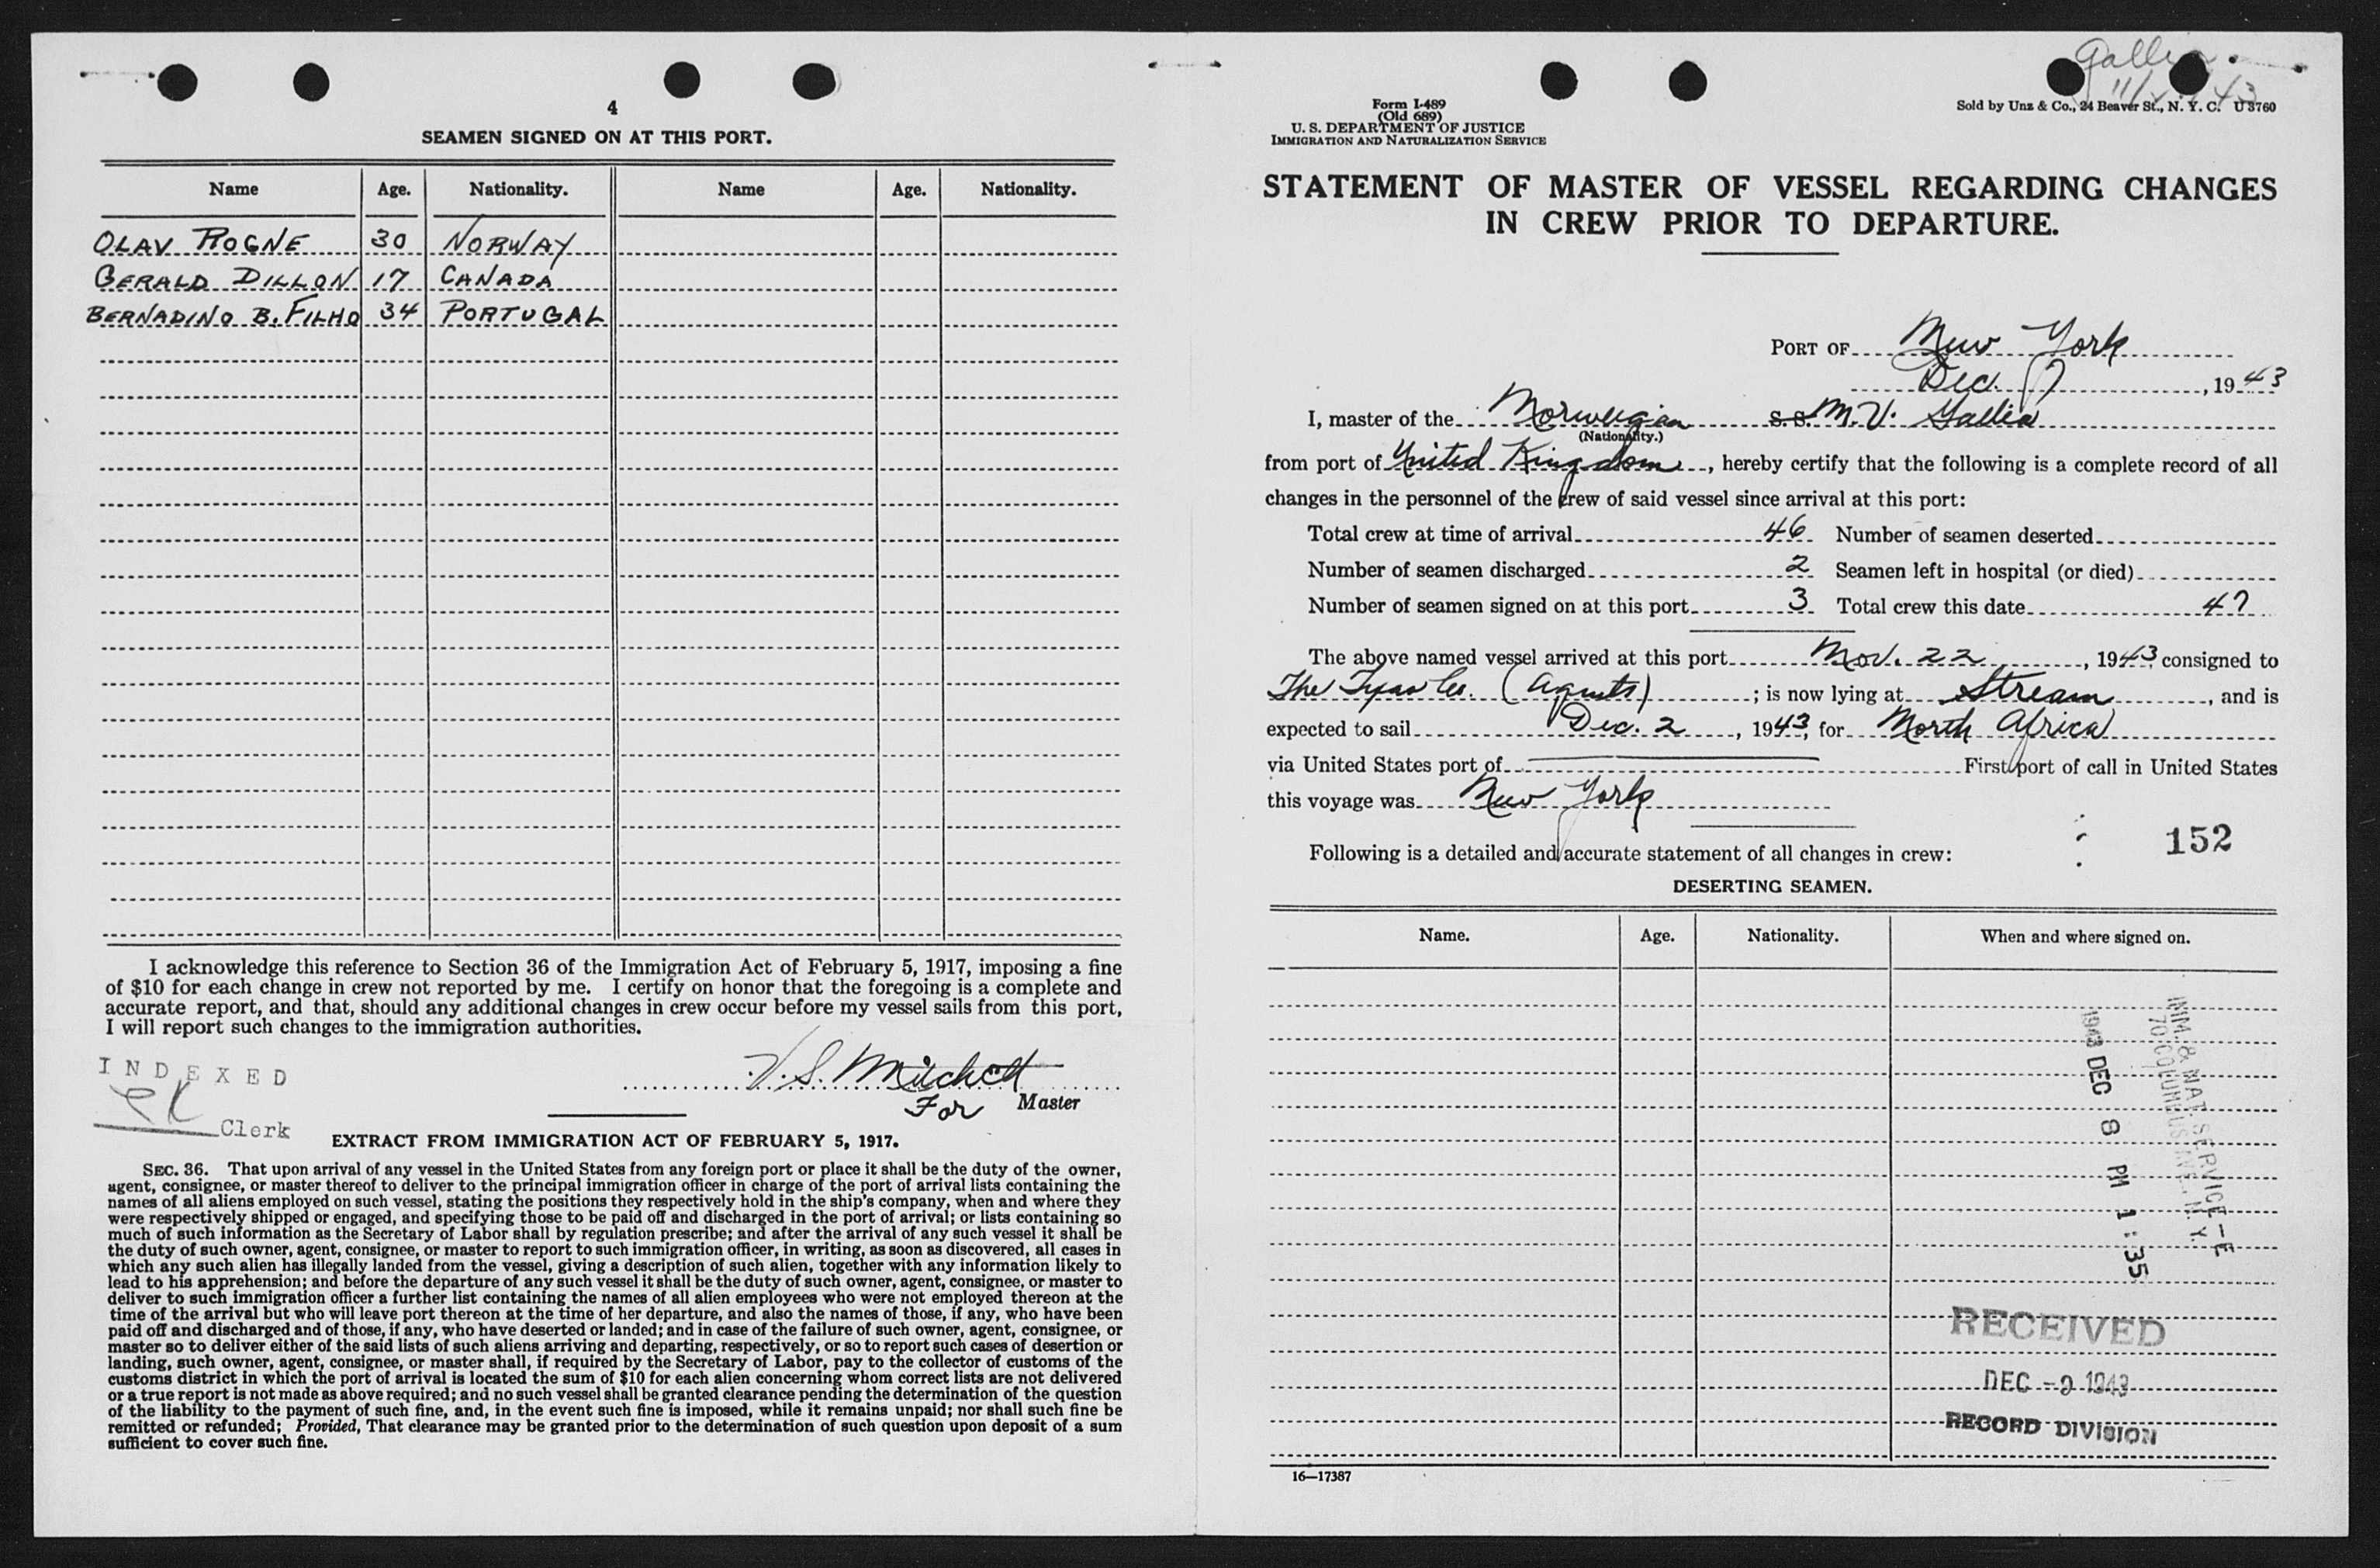 4
SEAMEN SIGNED ON AT THIS PORT.
Name Age. Nationality. Name Age. Nationality.
OLAV ROGNE 30 NORWAY
GERALD DILLON 17 CANADA
BERNADINO B. FILHO 34 PORTUGAL
I acknowledge this reference to Section 36 of the Immigration Act of February 5, 1917, imposing a fine
of $10 for each change in crew not reported by me. I certify on honor that the foregoing is a complete and
accurate report, and that, should any additional changes in crew occur before my vessel sails from this port,
I will report such changes to the immigration authorities.
INDEXED
Clerk
For Master
EXTRACT FROM IMMIGRATION ACT OF FEBRUARY 5, 1917.
SEC. 36. That upon arrival of any vessel in the United States from any foreign port or place it shall be the duty of the owner,
agent, consignee, or master thereof to deliver to the principal immigration officer in charge of the port of arrival lists containing the
names of all aliens employed on such vessel, stating the positions they respectively hold in the ship's company, when and where they
were respectively shipped or engaged, and specifying those to be paid off and discharged in the port of arrival; or lists containing so
much of such information as the Secretary of Labor shall by regulation prescribe; and after the arrival of any such vessel it shall be
the duty of such owner, agent, consignee, or master to report to such immigration officer, in writing, as soon as discovered, all cases in
which any such alien has illegally landed from the vessel, giving a description of such alien, together with any information likely to
lead to his apprehension; and before the departure of any such vessel it shall be the duty of such owner, agent, consignee, or master to
deliver to such immigration officer a further list containing the names of all alien employees who were not employed thereon at the
time of the arrival but who will leave port thereon at the time of her departure, and also the names of those, if any, who have been
paid off and discharged and of those, if any, who have deserted or landed; and in case of the failure of such owner, agent, consignee, or
master so to deliver either of the said lists of such aliens arriving and departing, respectively, or so to report such cases of desertion or
landing, such owner, agent, consignee, or master shall, if required by the Secretary of Labor, pay to the collector of customs of the
customs district in which the port of arrival is located the sum of $10 for each alien concerning whom correct lists are not delivered
or a true report is not made as above required; and no such vessel shall be granted clearance pending the determination of the question
of the liability to the payment of such fine, and, in the event such fine is imposed, while it remains unpaid; nor shall such fine be
remitted or refunded; Provided, That clearance may be granted prior to the determination of such question upon deposit of a sum
sufficient to cover such fine.
Form I-489
(Old 689)
U. S. DEPARTMENT OF JUSTICE
IMMIGRATION AND NATURALIZATION SERVICE
Sold by Unz & Co., 24 Beaver St., N. Y. C. U 8760
STATEMENT OF MASTER OF VESSEL REGARDING CHANGES
IN CREW PRIOR TO DEPARTURE.
PORT OF New York
Dec. 7, 1943
I, master of the Norwegian S. S. M.V. Gallia
(Nationality.)
from port of United Kingdom, hereby certify that the following is a complete record of all
changes in the personnel of the crew of said vessel since arrival at this port:
Total crew at time of arrival 46 Number of seamen deserted
Number of seamen discharged 2 Seamen left in hospital (or died)
Number of seamen signed on at this port 3 Total crew this date 47
The above named vessel arrived at this port Nov. 22, 1943 consigned to
The Texas Co. (Agents); is now lying at Stream, and is
expected to sail Dec. 2, 1943, for North Africa
via United States port of First port of call in United States
this voyage was New York
152
Following is a detailed and accurate statement of all changes in crew:
DESERTING SEAMEN.
Name. Age. Nationality. When and where signed on.
IMM. & NAT. SERVICE-E
70 COLUMBUS AVE., N. Y.
1943 DEC 8 PM 1:35
RECEIVED
DEC -9 1943
RECORD DIVISION
16—17387